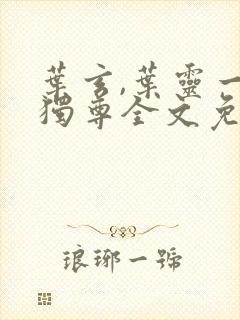 葉玄,葉靈一
獨尊全文免
琅琊一號